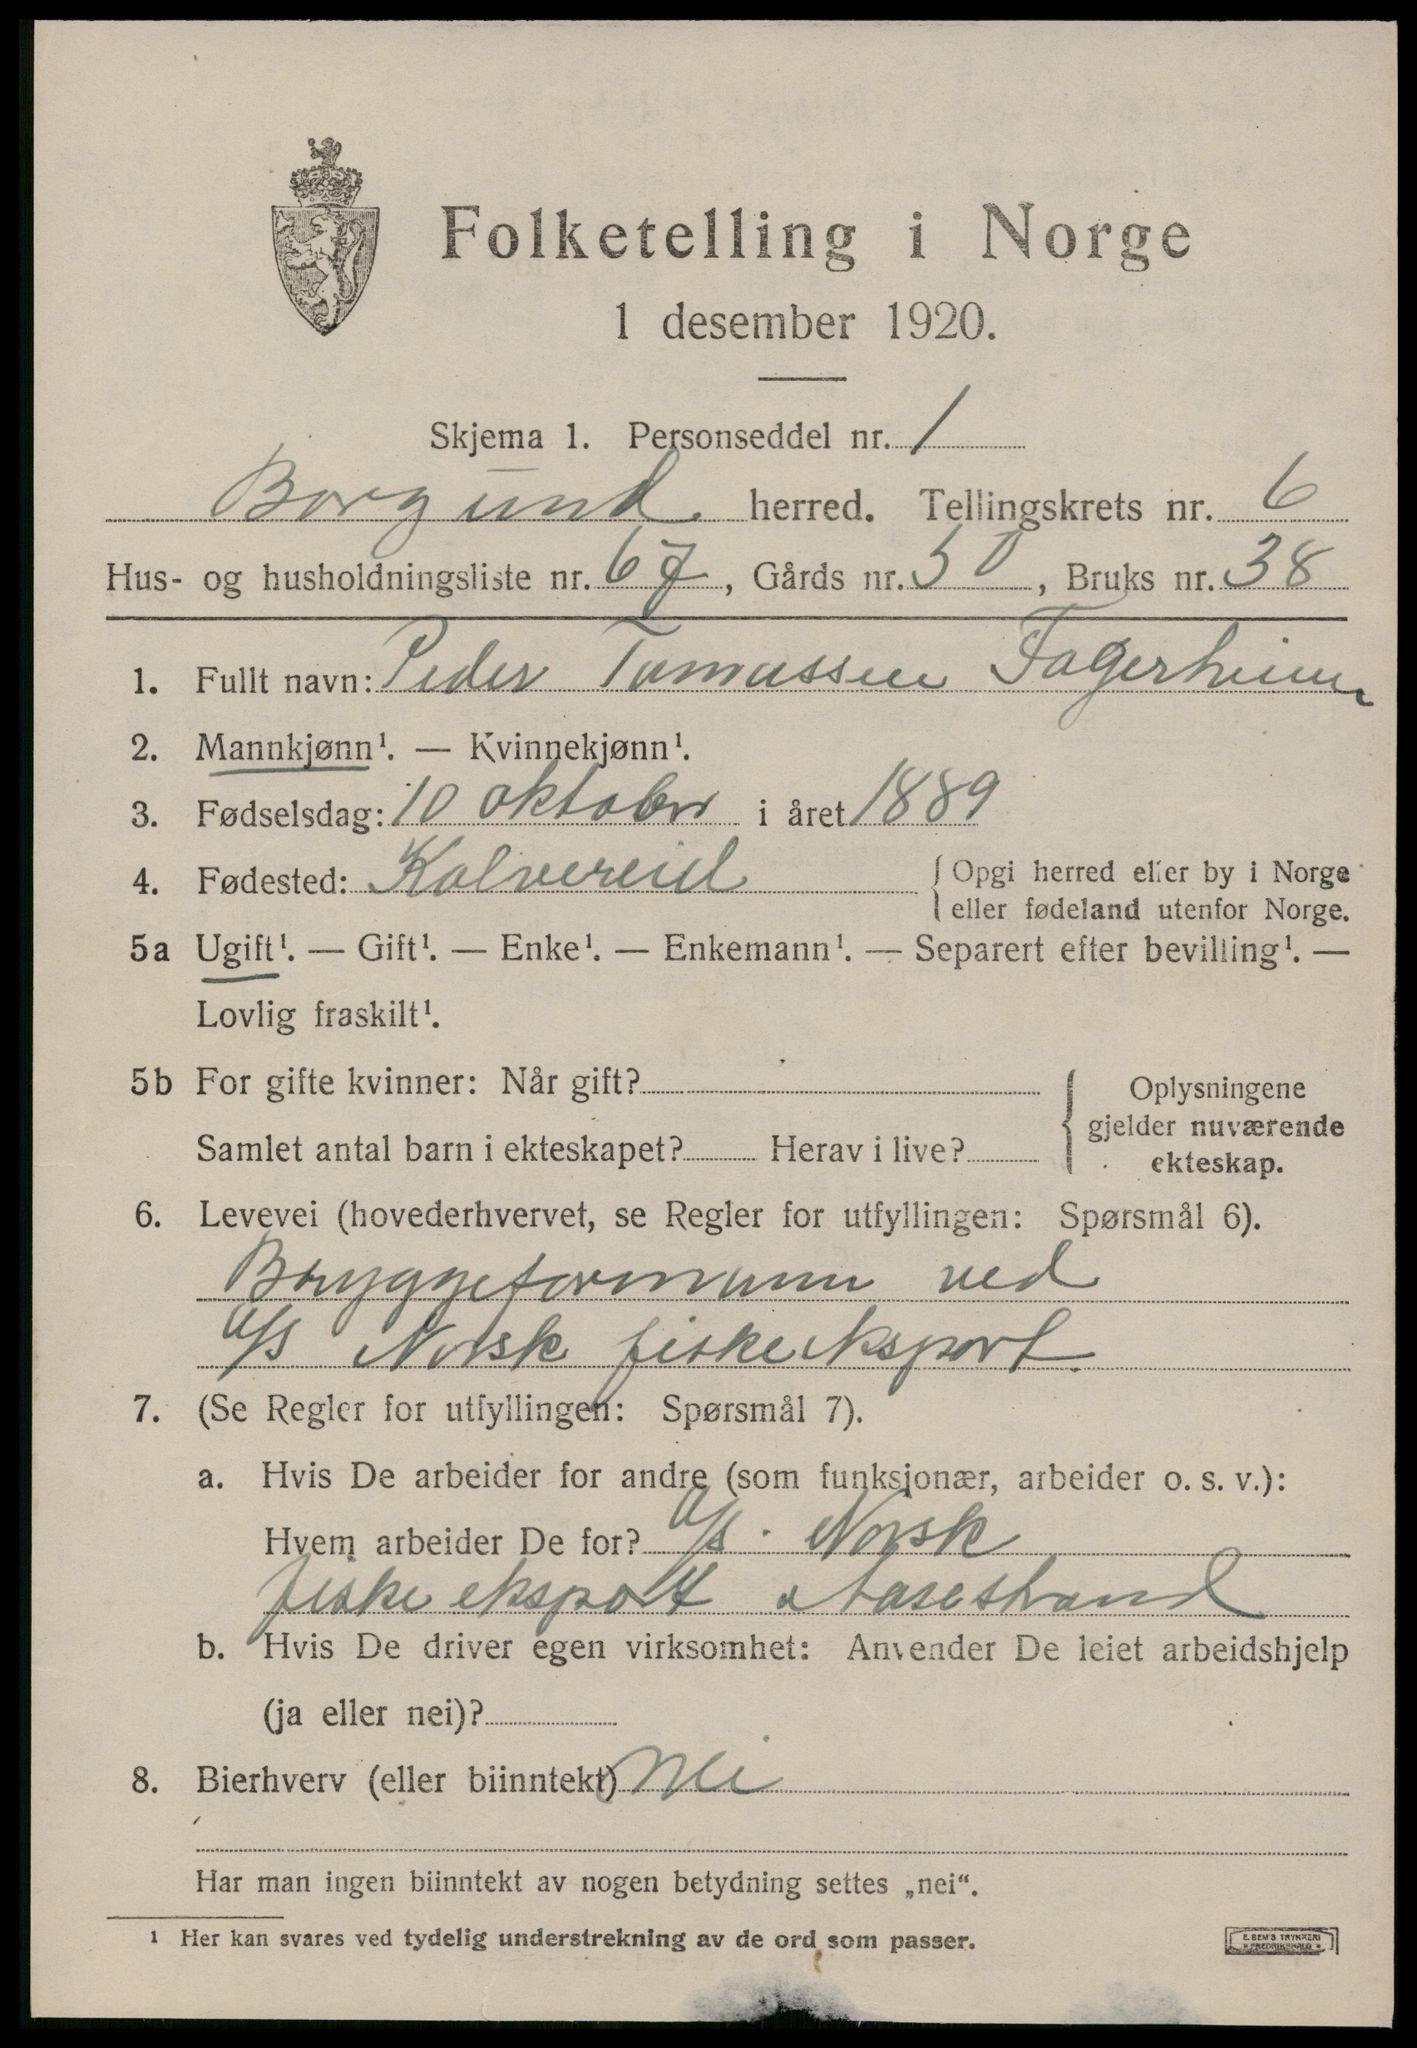 Folketelling i Norge
1 desember 1920.
Skjema 1. Personseddel nr. 1
Borgund herred. Tellingskrets nr. 6
Hus- og husholdningsliste nr. 67, Gårds nr. 50, Bruks nr. 38
1. Fullt navn: Peder Tomassen Fagerheim
2. Mannkjønn¹. — Kvinnekjønn¹.
3. Fødselsdag: 10 oktober i året 1889
4. Fødested: Kalvereid { Opgi herred eller by i Norge
eller fødeland utenfor Norge.
5a Ugift¹. — Gift¹. — Enke¹. — Enkemann¹. — Separert efter bevilling¹. —
Lovlig fraskilt¹.
5b For gifte kvinner: Når gift? { Oplysningene
gjelder nuværende
Samlet antal barn i ekteskapet? Herav i live? ekteskap.
6. Levevei (hovederhvervet, se Regler for utfyllingen: Spørsmål 6).
Bryggeformann ved
a/s Norsk fiskeeksport
7. (Se Regler for utfyllingen: Spørsmål 7).
a. Hvis De arbeider for andre (som funksjonær, arbeider o. s. v.):
Hvem arbeider De for? a/s. Norsk
fiskeeksport Aasestrand
b. Hvis De driver egen virksomhet: Anvender De leiet arbeidshjelp
(ja eller nei)?
8. Bierhverv (eller biinntekt) Nei
Har man ingen biinntekt av nogen betydning settes „nei“.
¹ Her kan svares ved tydelig understrekning av de ord som passer.
E. SEM'S TRYKKERI
FREDRIKSHALD